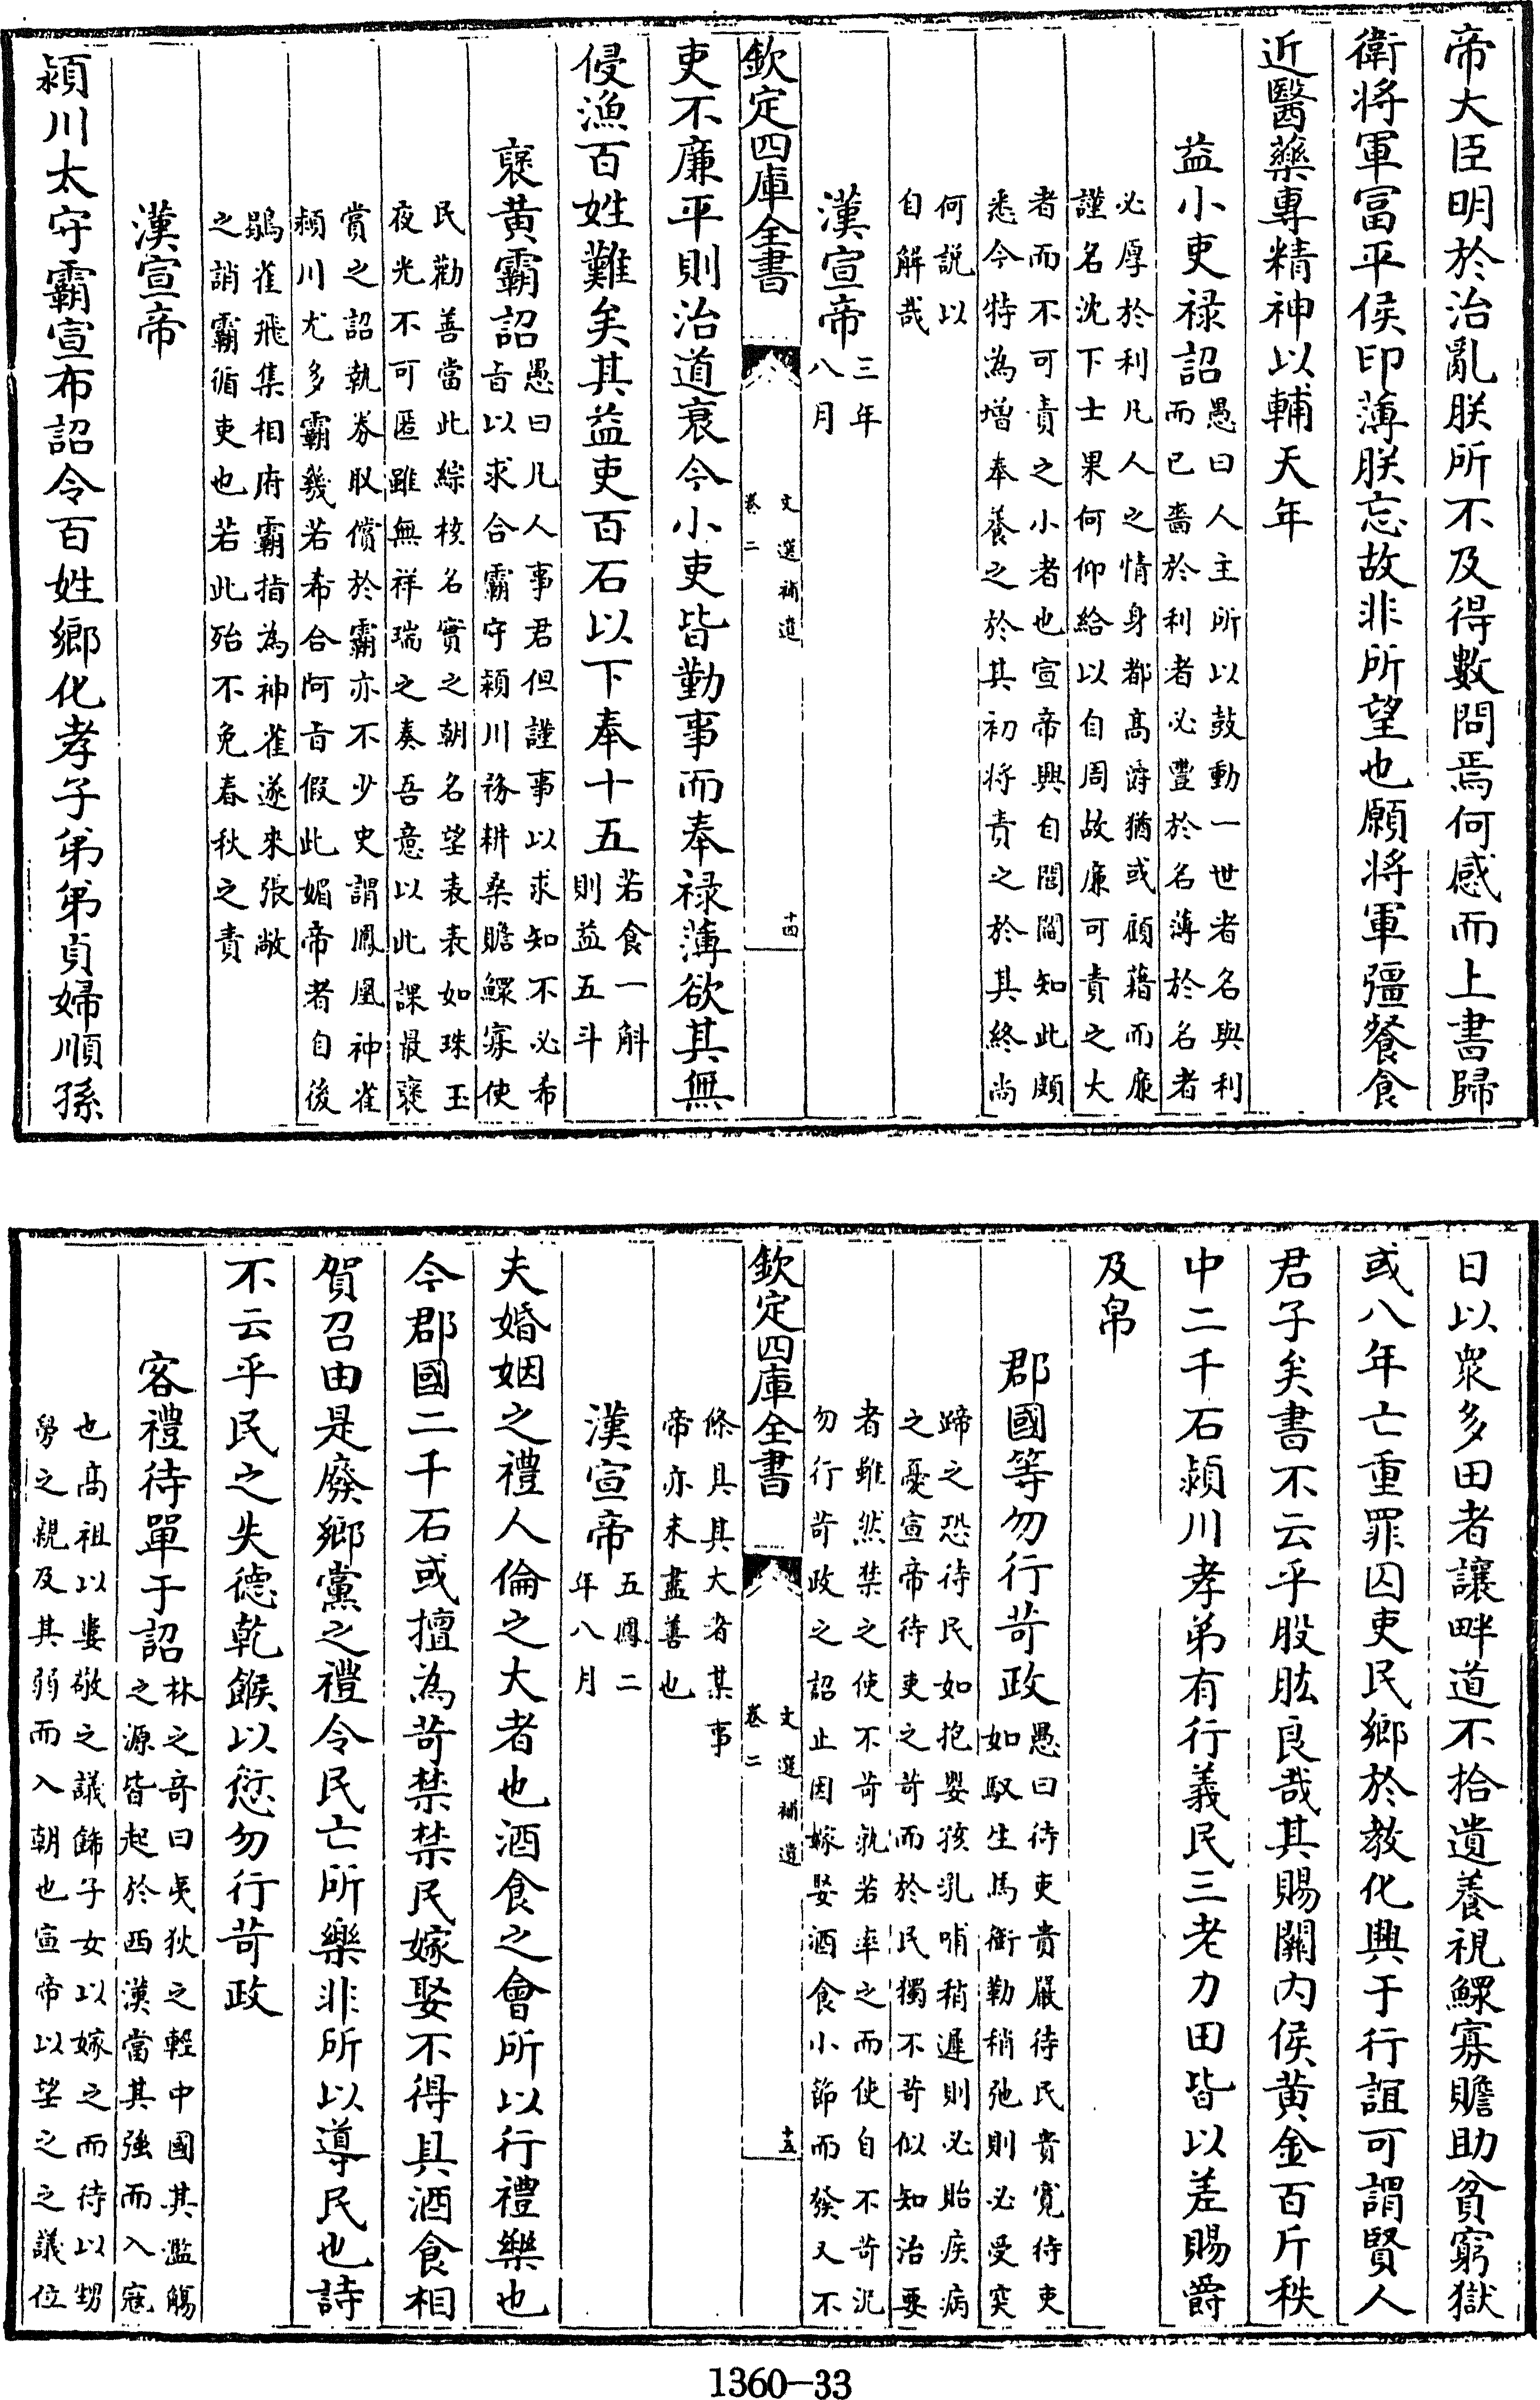 帝大臣明於治亂朕所不及得數問焉何感而上書歸
衛將軍富平侯印薄朕忘故非所望也願將軍彊餐食
近醫藥專精神以輔天年
益小吏祿詔愚曰人主所以鼓動一世者名與利
而已嗇於利者必豐於名薄於名者
必厚於利凡人之情身都高爵猶或顧藉而廉
謹名沈下士果何仰給以自周故廉可責之大
者而不可責之小者也宣帝興自閭閻知此頗
悉今特為增奉養之於其初將責之於其終尚
何説以
自解哉
漢宣帝三年
八月
欽定四庫全書
文選補遺
卷二
十四
吏不廉平則治道衰今小吏皆勤事而奉祿薄欲其無
侵漁百姓難矣其益吏百石以下奉十五若食一斛
則益五斗
褒黄霸詔愚曰凡人事君但謹事以求知不必希
旨以求合霸守潁川務耕桑贍鰥寡使
民勸善當此綜核名實之朝名望表表如珠玉
夜光不可匿雖無祥瑞之奏吾意以此課最褒
賞之詔執券取償於霸亦不少史謂鳳凰神雀
潁川尤多霸幾若希合阿旨假此媚帝者自後
鶡雀飛集相府霸指為神雀遂來張敞
之誚霸循吏也若此殆不免春秋之責
漢宣帝
潁川太守霸宣布詔令百姓鄉化孝子弟弟貞婦順孫
日以衆多田者讓畔道不拾遺養視鰥寡贍助貧窮獄
或八年亡重罪囚吏民鄉於教化興于行誼可謂賢人
君子矣書不云乎股肱良哉其賜關内侯黄金百斤秩
中二千石潁川孝弟有行義民三老力田皆以差賜爵
及帛
郡國等勿行苛政愚曰待吏貴嚴待民貴寛待吏
如馭生馬銜勒稍弛則必受突
蹄之恐待民如抱嬰孩乳哺稍遲則必貽疾病
之憂宣帝待吏之苛而於民獨不苛似知治要
者雖然禁之使不苛孰若率之而使自不苛況
勿行苛政之詔止因嫁娶酒食小節而發又不
條具其大者某事
帝亦未盡善也
漢宣帝五鳳二
年八月
欽定四庫全書
文選補遺
卷二
十五
夫婚姻之禮人倫之大者也酒食之會所以行禮樂也
今郡國二千石或擅為苛禁禁民嫁娶不得具酒食相
賀召由是廢鄉黨之禮令民亡所樂非所以導民也詩
不云乎民之失德乾餱以愆勿行苛政
客禮待單于詔林之竒曰夷狄之輕中國其濫觴
之源皆起於西漢當其強而入寇
也高祖以婁敬之議飾子女以嫁之而待以甥
舅之親及其弱而入朝也宣帝以望之之議位
1360-33